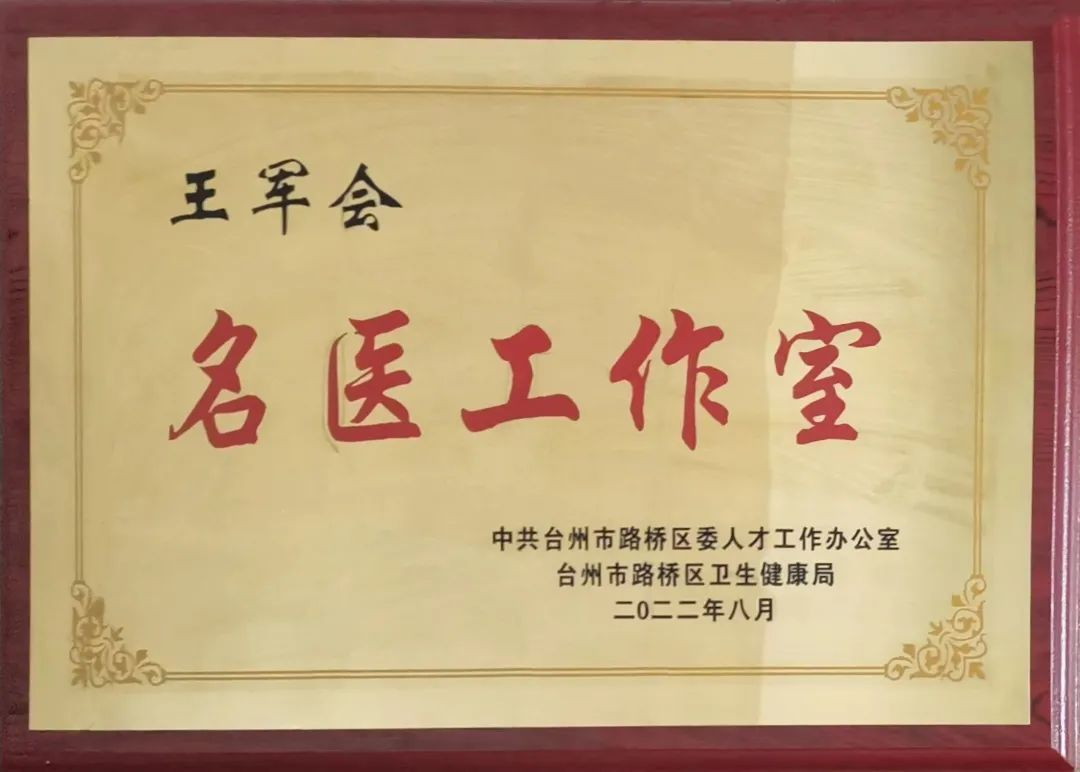 王军会
名医工作室
中共台州市路桥区委人才工作办公室
台州市路桥区卫生健康局
二0二二年八月